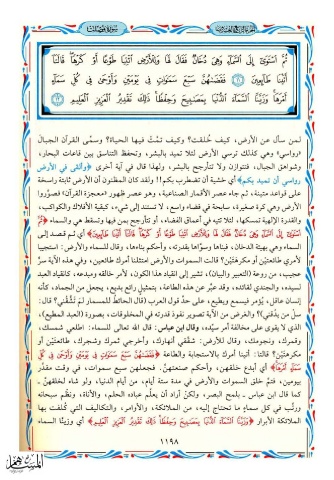 ثُمَّ اسْتَوَىٰ إِلَى السَّمَاءِ وَهِيَ دُخَانٌ فَقَالَ لَهَا وَلِلْأَرْضِ ائْتِيَا طَوْعًا أَوْ كَرْهًا قَالَتَا
أَتَيْنَا طَائِعِينَ ﴿١١﴾ فَقَضَاهُنَّ سَبْعَ سَمَاوَاتٍ فِي يَوْمَيْنِ وَأَوْحَىٰ فِي كُلِّ سَمَاءٍ
أَمْرَهَا وَزَيَّنَّا السَّمَاءَ الدُّنْيَا بِمَصَابِيحَ وَحِفْظًا ذَٰلِكَ تَقْدِيرُ الْعَزِيزِ الْعَلِيمِ ﴿١٢﴾
لمن سأل عن الأرض، كيف خُلقت؟ وكيف تمَّت فيها الحياة؟ وسمَّى القرآن الجبالَ
«رواسي» وهي كذلك ترسي الأرض لئلا تميد بالبشر، وتحفظ التناسق بين قاعات البحار،
وشواهق الجبال، فتتوازن ولا تتأرجح بالبشر، ولهذا قال في آية أخرى ﴿وألقى في الأرض
رواسي أن تميد بكم﴾ أي خشية أن تضطرب بكم!! ولقد كان المظنون أن الأرض ثابتة راسخة
على قواعد متينة، ثم جاء عصر الأقمار الصناعية، وهو عصر ظهور «معجزة القرآن» فصوَّروا
الأرض وهي كرة صغيرة، سابحة في فضاء واسع، لا تستند إلى شيء، كبقية الأفلاك والكواكب،
والقدرة الإلهية تمسكها، لئلا تتيه في أعماق الفضاء، أو تتأرجح بمن فيها وتسقط هي والسماء ﴿ثُمَّ
اسْتَوَىٰ إِلَى السَّمَاءِ وَهِيَ دُخَانٌ فَقَالَ لَهَا وَلِلْأَرْضِ ائْتِيَا طَوْعًا أَوْ كَرْهًا قَالَتَا أَتَيْنَا طَائِعِينَ﴾ أي ثم قصد إلى
السماء وهي بهيئة الدخان، فبناها وسوَّاها بقدرته، وأحكم بناءها، وقال للسماء والأرض: استجيبا
لأمري طائعتَيْن أو مكرهتَيْن؟ قالت السموات والأرض امتثلنا أمرك طائعين، وفي هذه الآية سرٌّ
عجيب، من روعة (التعبير والبيان) تشير إلى انقياد هذا الكون، لأمر خالقه ومبدعه، كانقياد العبد
لسيده، والجندي لقائده، وقد عبَّر عن هذه الطاعة، بتمثيلٍ رائعٍ بديع، يجعل من الجماد، كأنه
إنسان عاقل، يُؤمر فيسمع ويطيع، على حدِّ قول العرب (قال الحائط للمسمار لم تشُقُّني؟ قال:
سلْ من يدُقُّني)؟ والغرض من الآية تصوير نفوذ قدرته في المخلوقات، بصورة (العبد المطيع)،
الذي لا يقوى على مخالفة أمر سيِّده، وقال ابن عباس: قال الله تعالى للسماء: أطلعي شمسك،
وقمرك، ونجومك، وقال للأرض: شققي أنهارك، وأخرجي ثمرك وشجرك، طائعتَيْن أو
مكرهتَيْن؟ قالتا: أتينا أمرك بالاستجابة والطاعة ﴿فَقَضَاهُنَّ سَبْعَ سَمَاوَاتٍ فِي يَوْمَيْنِ وَأَوْحَىٰ فِي كُلِّ
سَمَاءٍ أَمْرَهَا﴾ أي أبدع خلقهن، وأحكم صنعتهنَّ، فجعلهن سبع سموات، في وقت مقدَّر
بيومين، فتمَّ خلق السموات والأرض في مدة ستة أيام، من أيام الدنيا، ولو شاء لخلقهنَّ ـ
كما قال ابن عباس ـ بلمح البصر، ولكنْ أراد أن يعلِّم عباده الحلم، والأناة، ونظَّم سبحانه
ورتَّب في كل سماءٍ ما تحتاج إليه، من الملائكة، والأوامر، والتكاليف التي كُلِّفت بها
الملائكة الأبرار ﴿وَزَيَّنَّا السَّمَاءَ الدُّنْيَا بِمَصَابِيحَ وَحِفْظًا ذَٰلِكَ تَقْدِيرُ الْعَزِيزِ الْعَلِيمِ﴾ أي وزينَّا السماء
١١٩٨